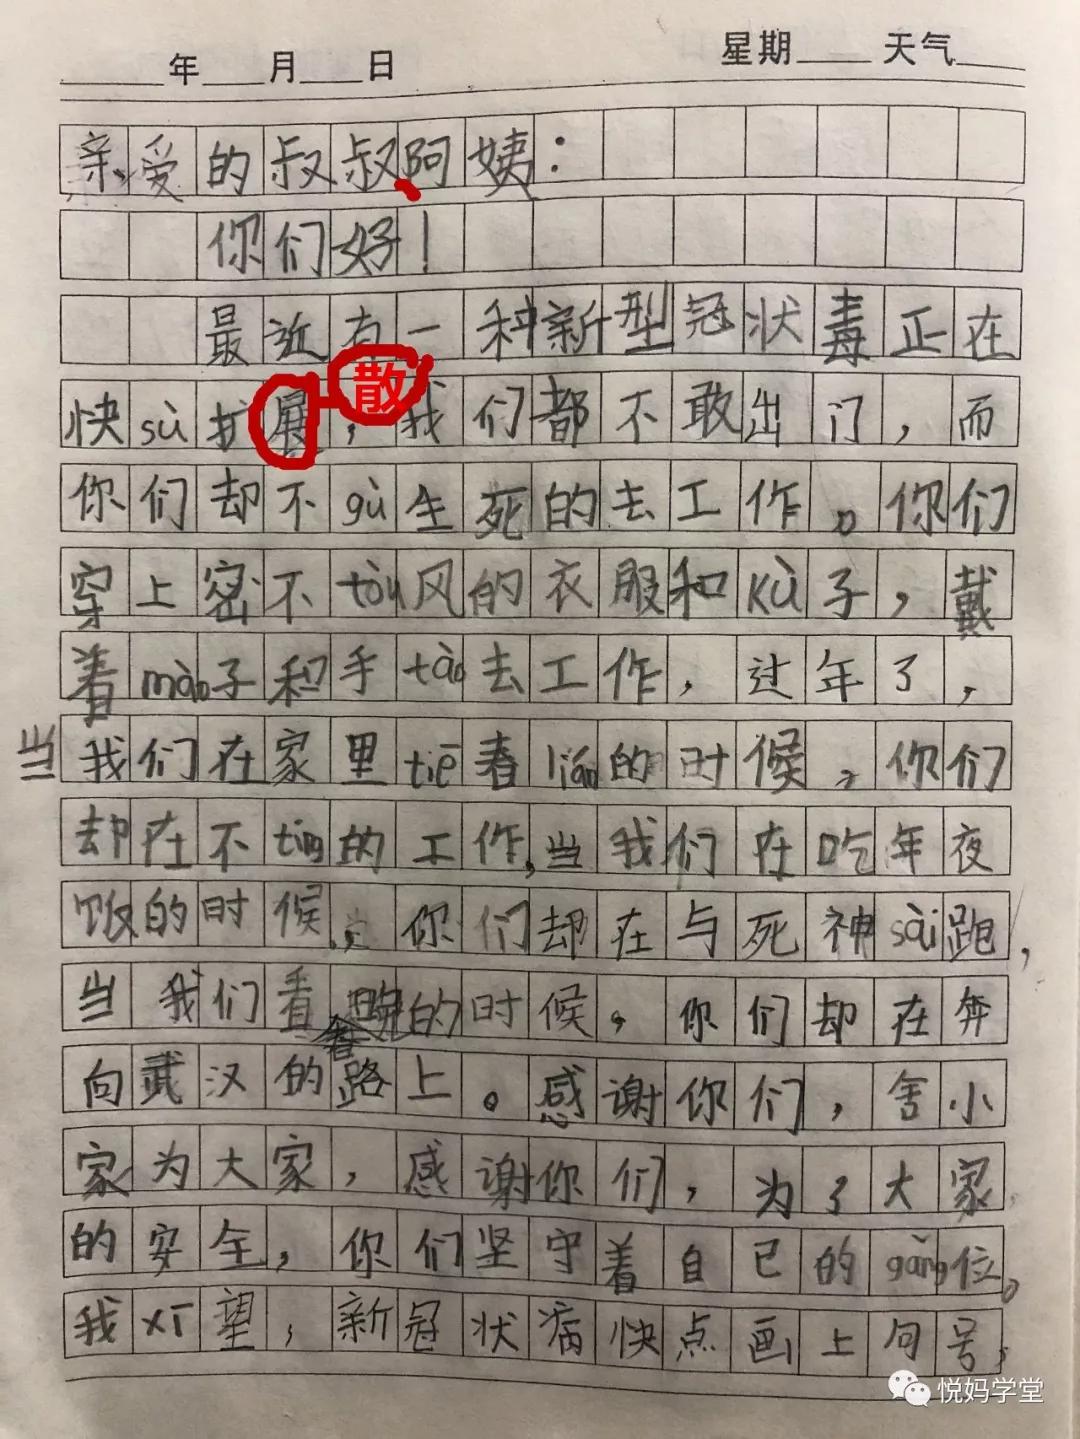 年 月 日 星期 天气
亲爱的叔叔阿姨：
你们好！
最近有一种新型冠状毒正在
散
快sù扩展，我们都不敢出门，而
你们却不gù生死的去工作。你们
穿上密不tòu风的衣服和kù子，戴
着mào子和手tào去工作，过年了，
当我们在家里tiē春lián的时候，你们
却在不tíng的工作，当我们在吃年夜
饭的时候，你们却在与死神sài跑，
当我们看春晚的时候，你们却在奔
向武汉的路上。感谢你们，舍小
家为大家，感谢你们，为了大家
的安全，你们坚守着自己的gǎng位。
我xī望，新冠状病快点画上句号，
悦妈学堂